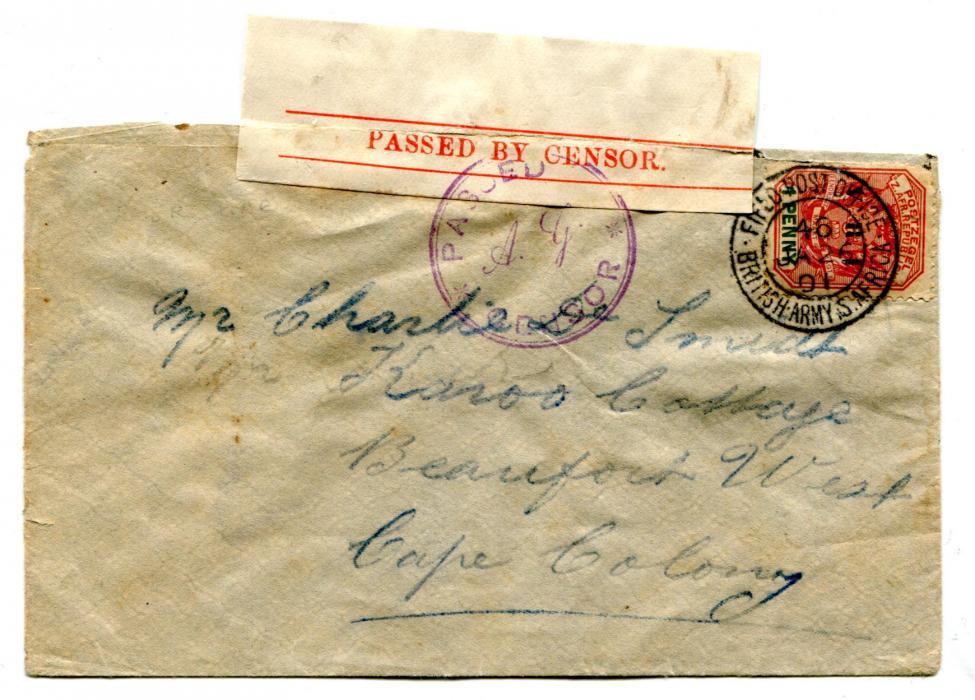 PASSED BY CENSOR.
PASSED
A. G.
CENSOR
FIELD POST OFFICE
46
01
BRITISH ARMY S. AFRICA
POSTZEGEL
Z. AFR. REPUBLIEK
1 PENNY
Mr Charlie De Smidt
Karoo Cottage
Beaufort West
Cape Colony